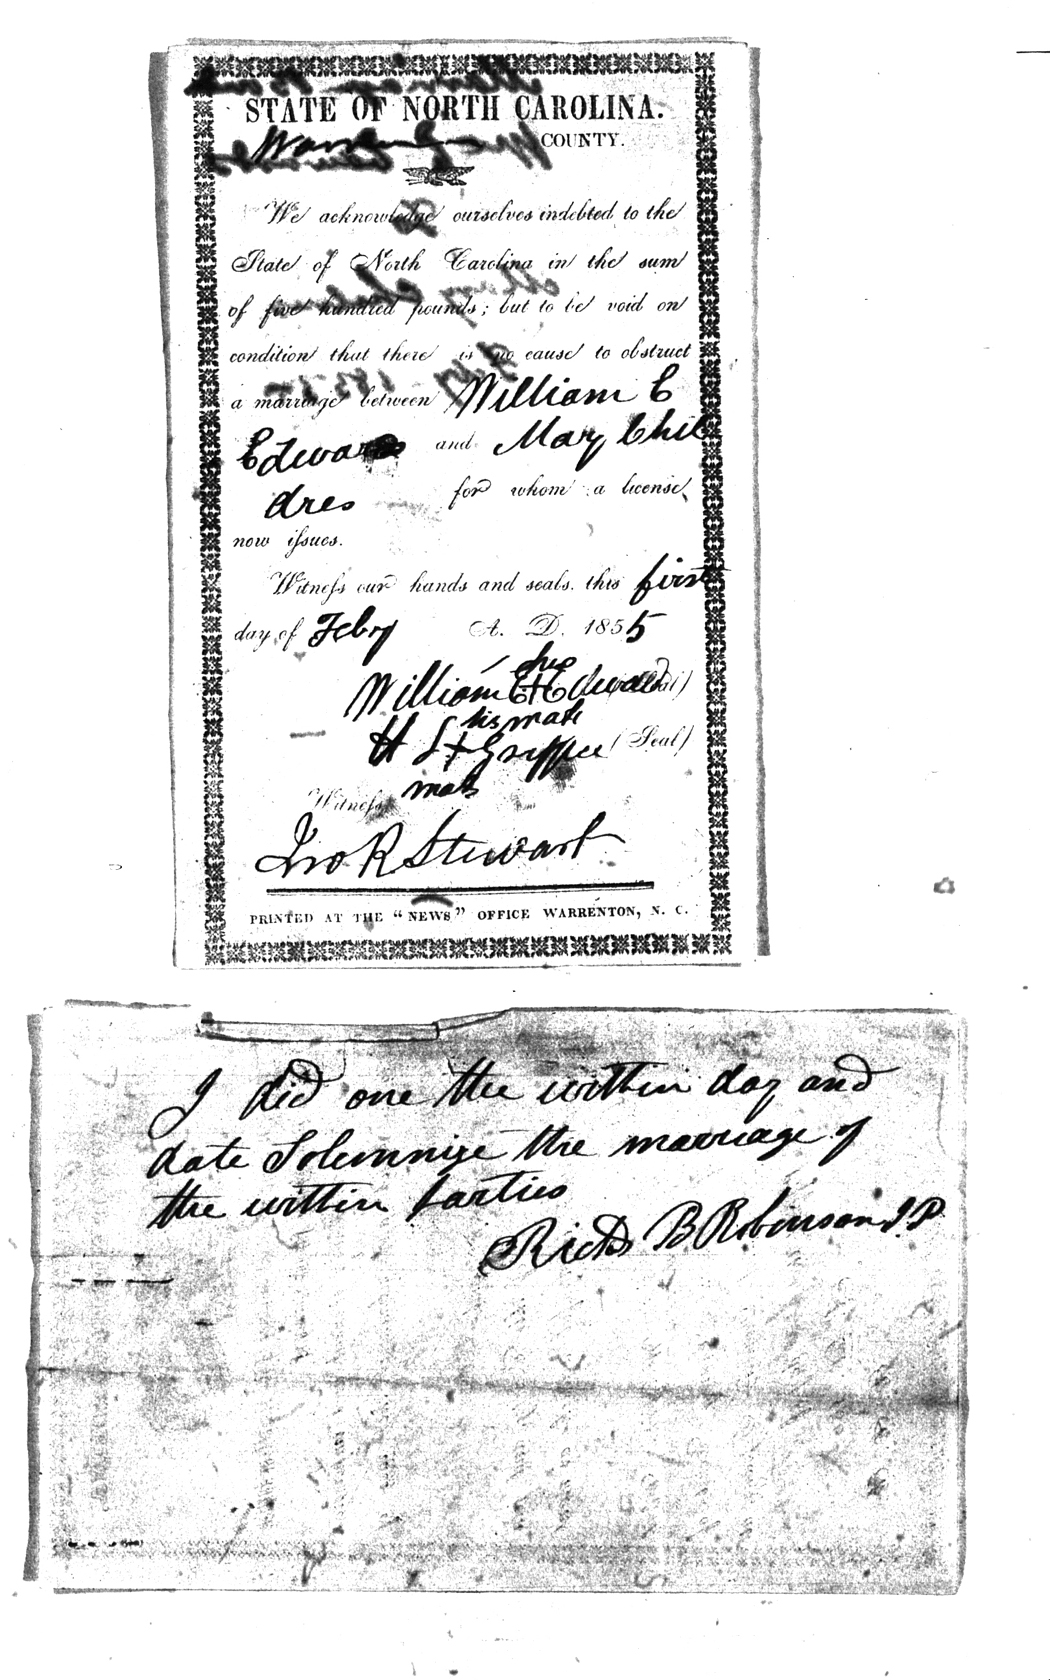 STATE OF NORTH CAROLINA.
Warren COUNTY.
We acknowledge ourselves indebted to the
State of North Carolina in the sum
of five hundred pounds; but to be void on
condition that there is no cause to obstruct
a marriage between William E
Edwards and Mary Chil
dres for whom a license
now issues.
Witness our hands and seals, this first
day of Feby A. D. 1855
his
William E + Edwards (Seal)
his mark
H S + Grippee (Seal)
mark
Witness
Jno R Stewart
PRINTED AT THE "NEWS" OFFICE WARRENTON, N. C.
I did one the within day and
date Solemnize the marriage of
the within parties
Richd B Robinson J.P.